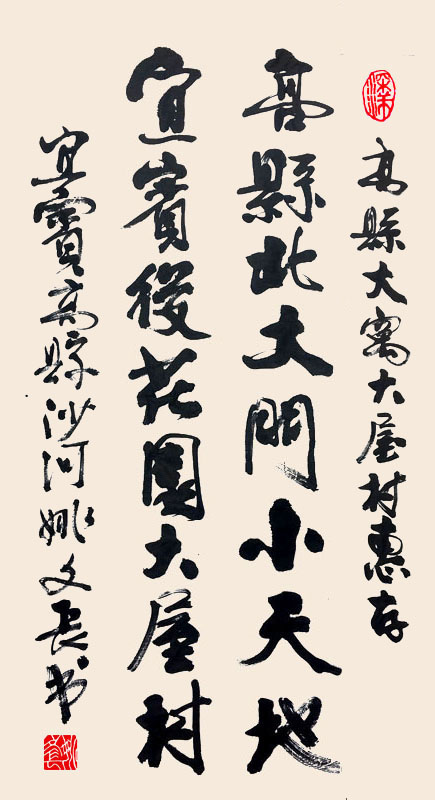 高縣大窩大屋村惠存
高縣北大門小天地
宜賓後花園大屋村
宜賓高縣沙河姚文長书